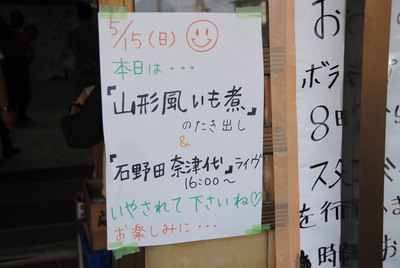 5/15(日)
本日は・・・
『山形風いも煮』
のたき出し
&
『石野田奈津代』ライヴ
16:00〜
いやされて下さいね♡
お楽しみに・・・
お
ボラ
8日
スタ
を行
時間